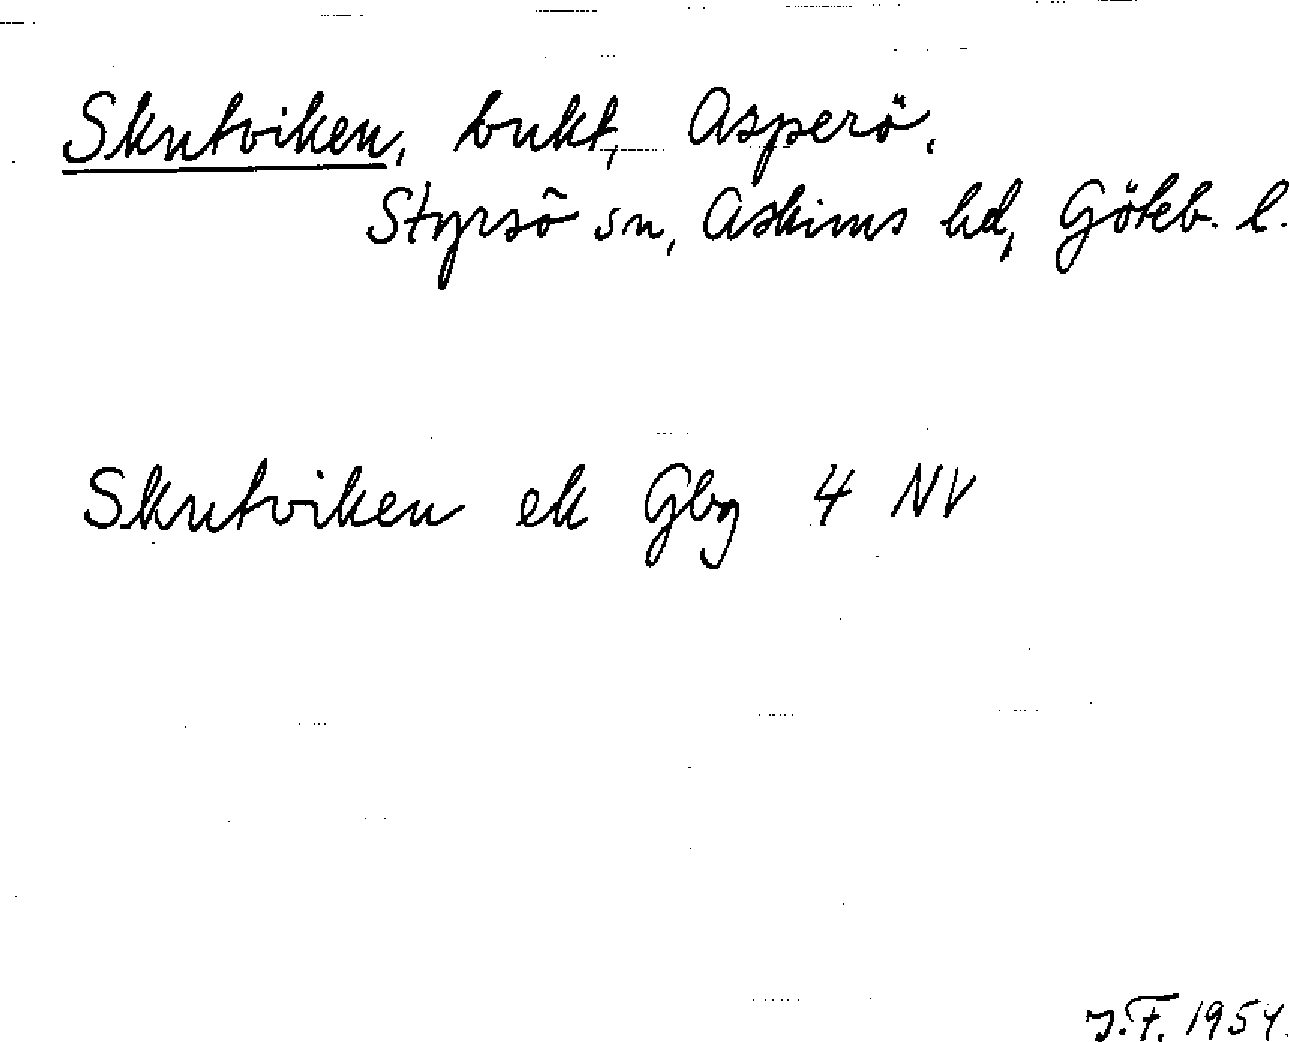 Skutviken, bukt, Asperö.
Styrsö sn, Askims hd, Göteb. l.
Skutviken ek Gbg 4 NV
J.F. 1954.